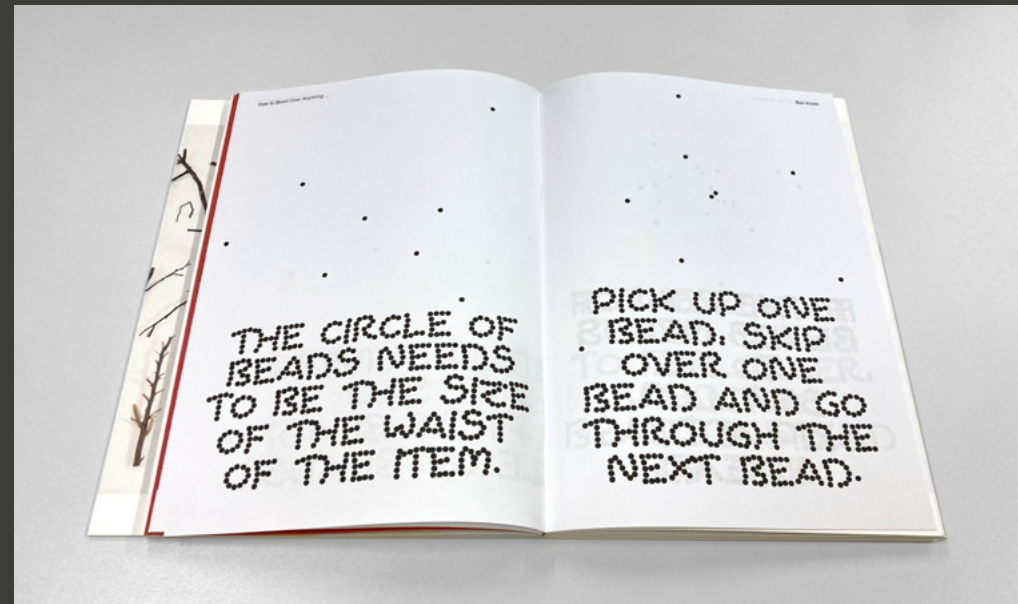 How to Bead Over Anything...
THE CIRCLE OF
BEADS NEEDS
TO BE THE SIZE
OF THE WAIST
OF THE ITEM.
PICK UP ONE
BEAD. SKIP
OVER ONE
BEAD AND GO
THROUGH THE
NEXT BEAD.